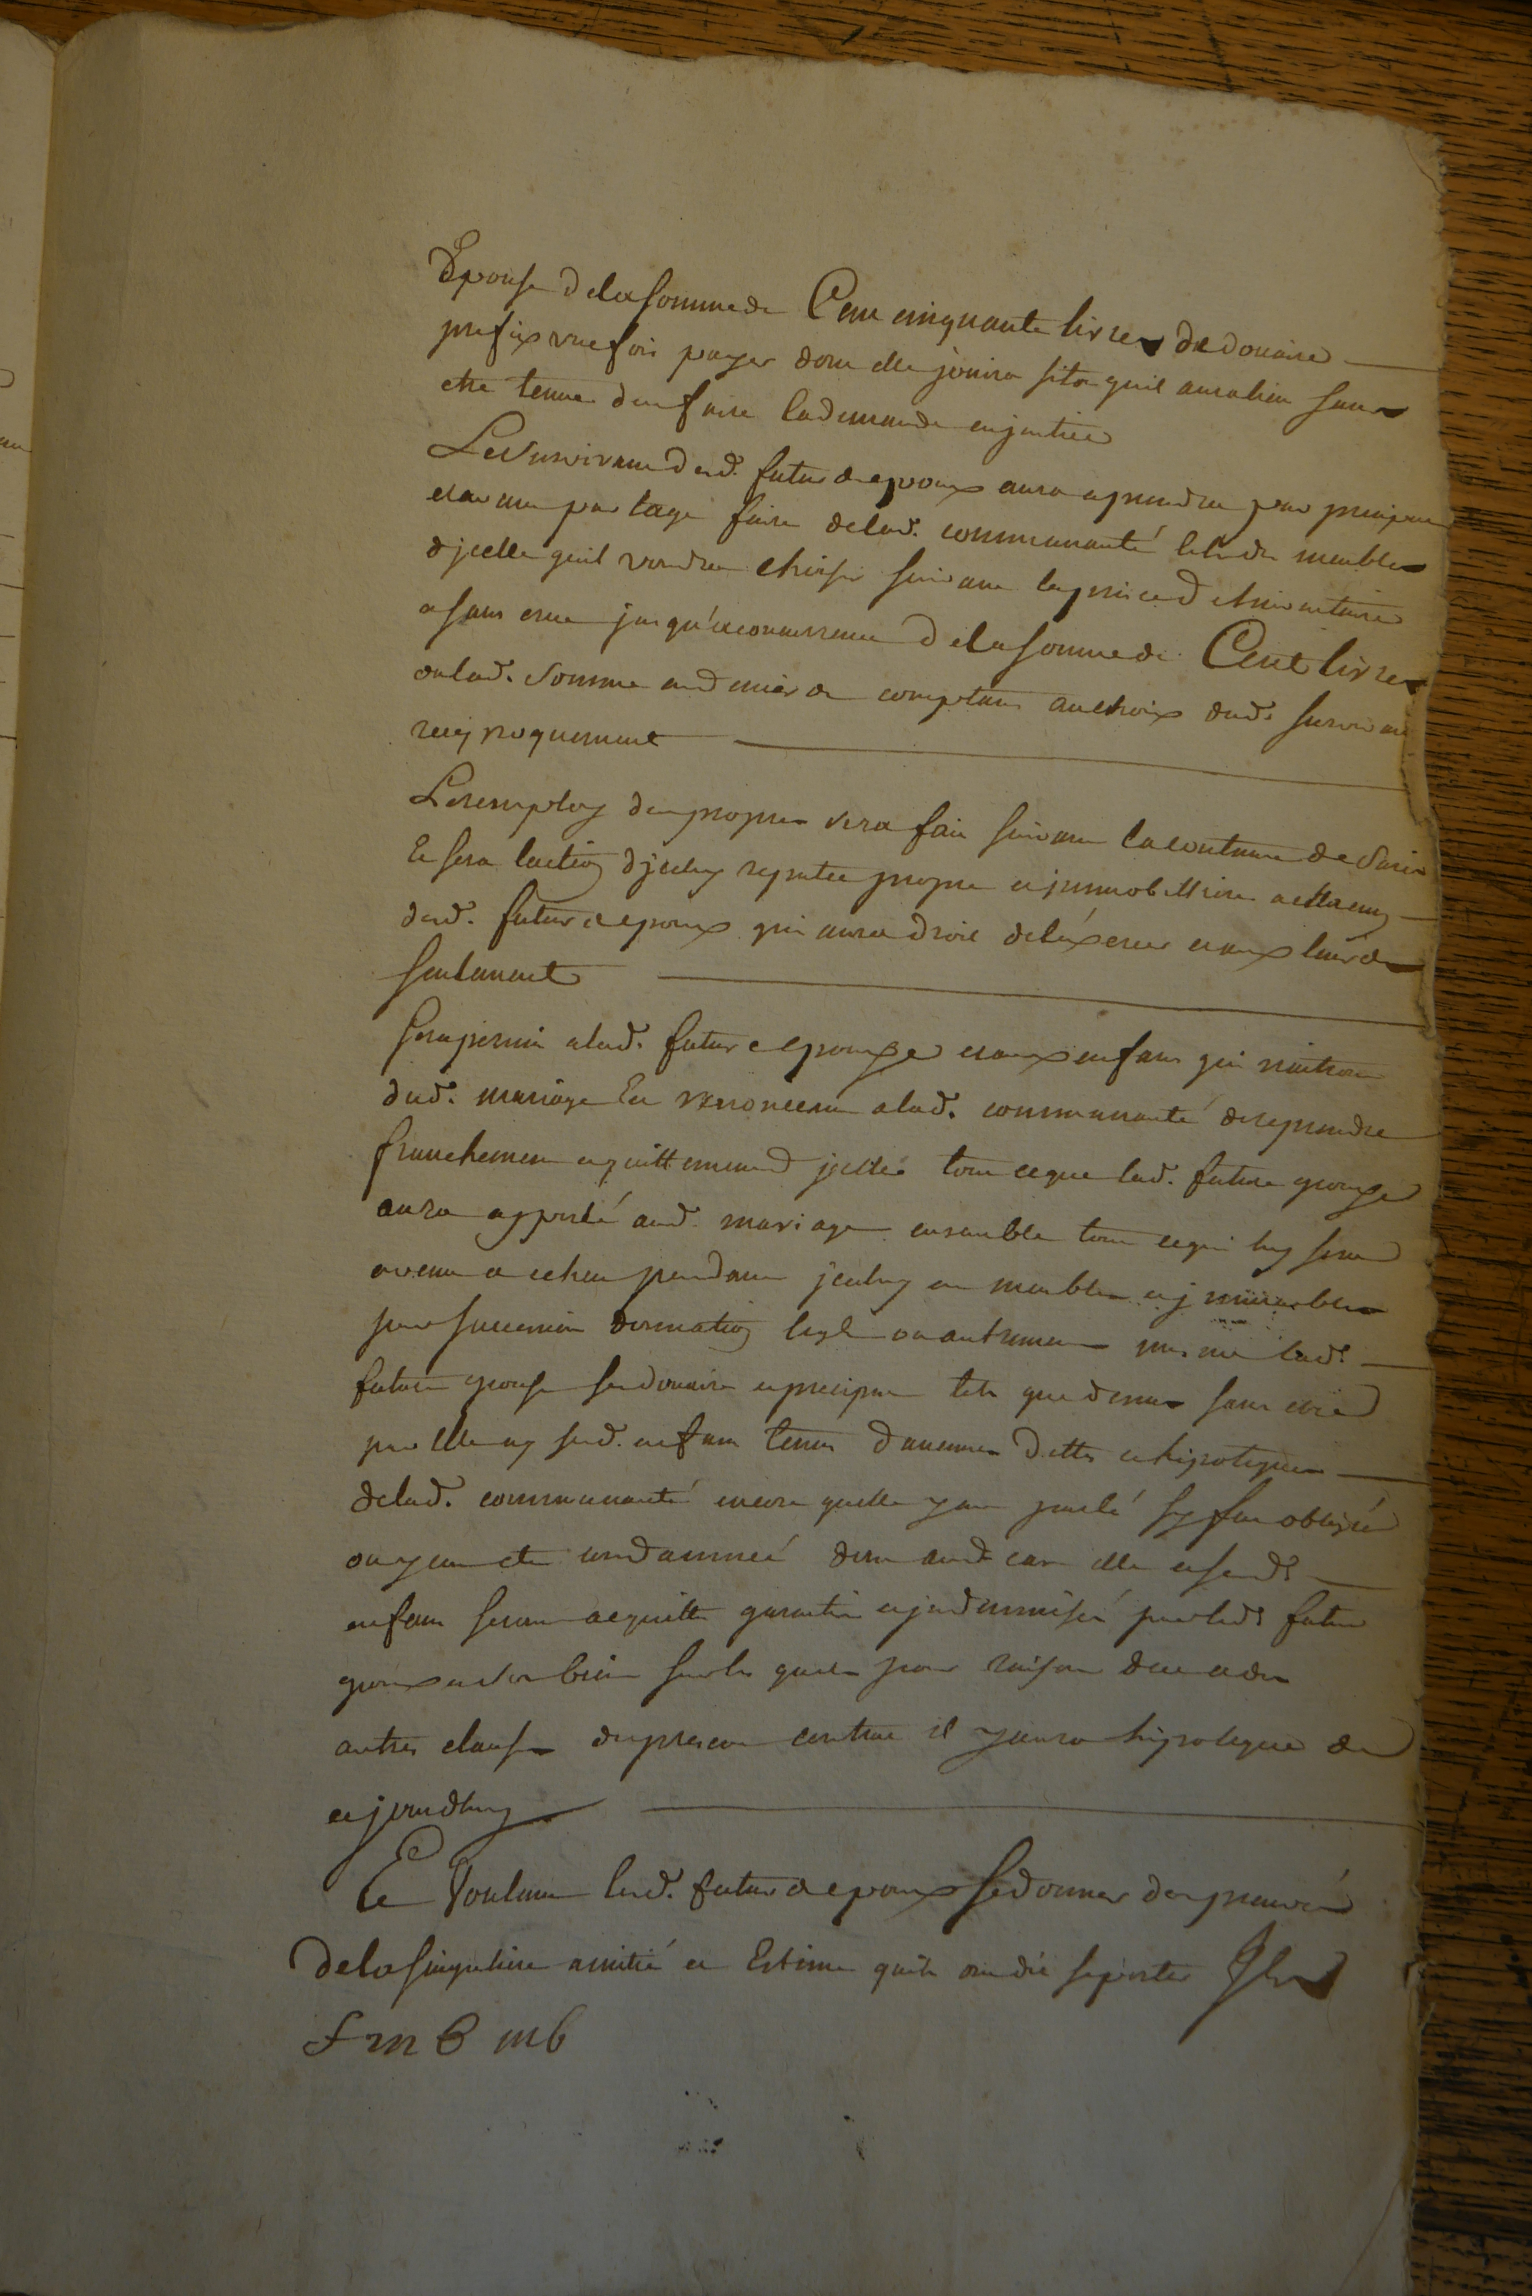 Epouse de la somme de Cent cinquante livres de douaire
prefix une fois payer dont elle jouira sitot quil aura lieu sans
etre tenue den faire la demande en justice
Le Survivant desd. futurs epoux aura et prendra par preciput
et avant partage faire de lad. communauté tels des meubles
d'jcelle quil voudra choisir suivant la prisee de l'inventaire
et sans crue jusqu'a concurrence de la somme de Cent livres
ou lad. Somme en deniers comptans au choix dud. survivant
reciproquement
Le remploy des propres sera fait suivant la coutume de Paris
Et sera l'action d'jceluy reputée propre et jmmobilliere a celluy
desd. futurs epoux qui aura droit de l'éxercer et aux siens
seulement
Sera permis a lad. future epouse et aux enfans qui naitront
dud. mariage En renonceant a lad. communauté de reprendre
franchement et quittement d'jcelle tout ce que lad. future epouse
aura apporté aud. mariage ensemble tout ce qui luy sera
avenu et echeu pendant jceluy en meubles et jmmeubles
par succession donnation legs ou autrement mesme lad.
future epouse ses douaire et preciput tels que dessus sans etre
par elle ny sesd. enfans tenus d'aucunes dettes et hipoteques
de lad. communauté encore quelle y eut parlé s'y fut obligée
ou y eut eté condamnée dont aud. cas elle et sesd.
enfans seront acquittés garantis et jndemnisés par led. futur
epoux et sur ses biens sur les quels pour raison de ce et des
autres clauses du present contrat il y aura hipoteque de
ce jourdhuy
Et Voulant lesd. futurs epoux se donner des preuves
de la singuliere amitié et Estime quils ont dit se porter Ils
f m B m b